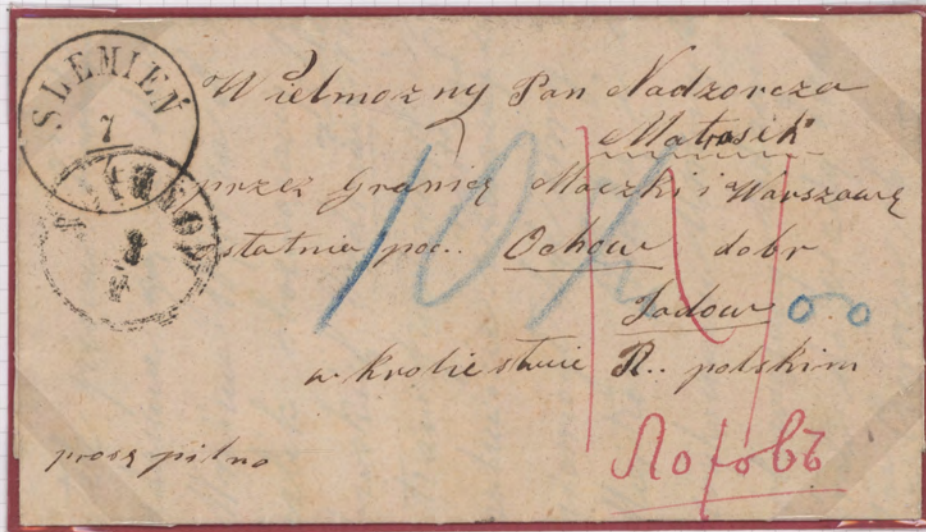 SLEMIEŃ
7
4
Wielmozny Pan Nadzorcza
Matosik
przez Granicą Maczki i Warszawę
ostatnia poc.. Ochow dobr
8
4
10
Jadow
w krolie stwie R.. polskim
prosą pilno